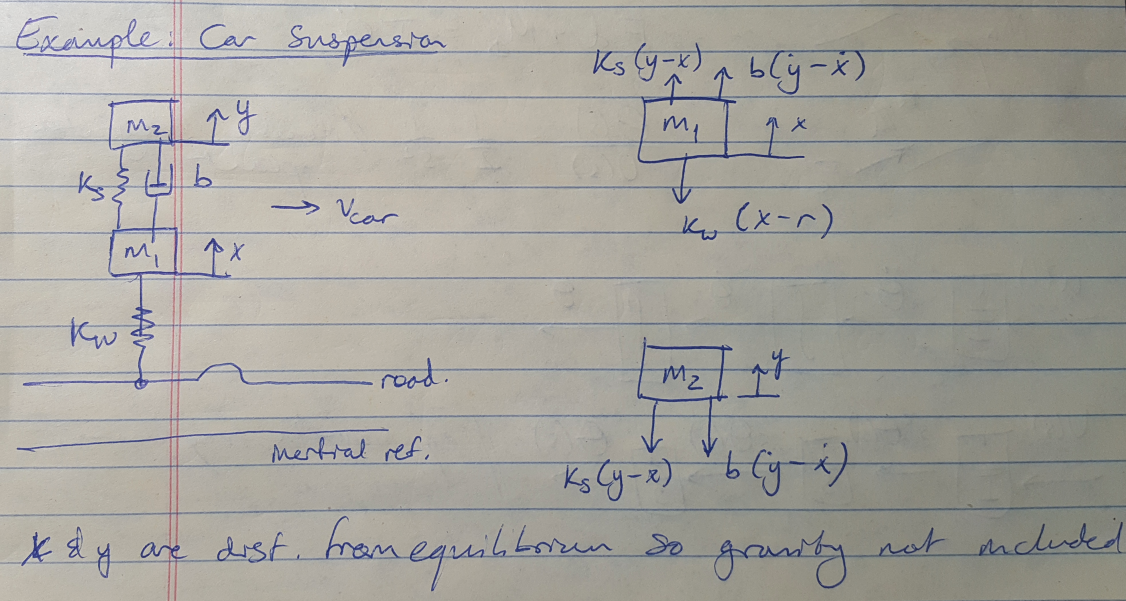 Example: Car Suspension
m₂
y
Ks
b
v car
m₁
x
Kw
road.
inertial ref.
Ks(y-x)
b(ẏ-ẋ)
m₁
x
Kw (x-r)
m₂
y
Ks(y-x)
b(ẏ-ẋ)
x & y are dist. from equilibrium so gravity not included